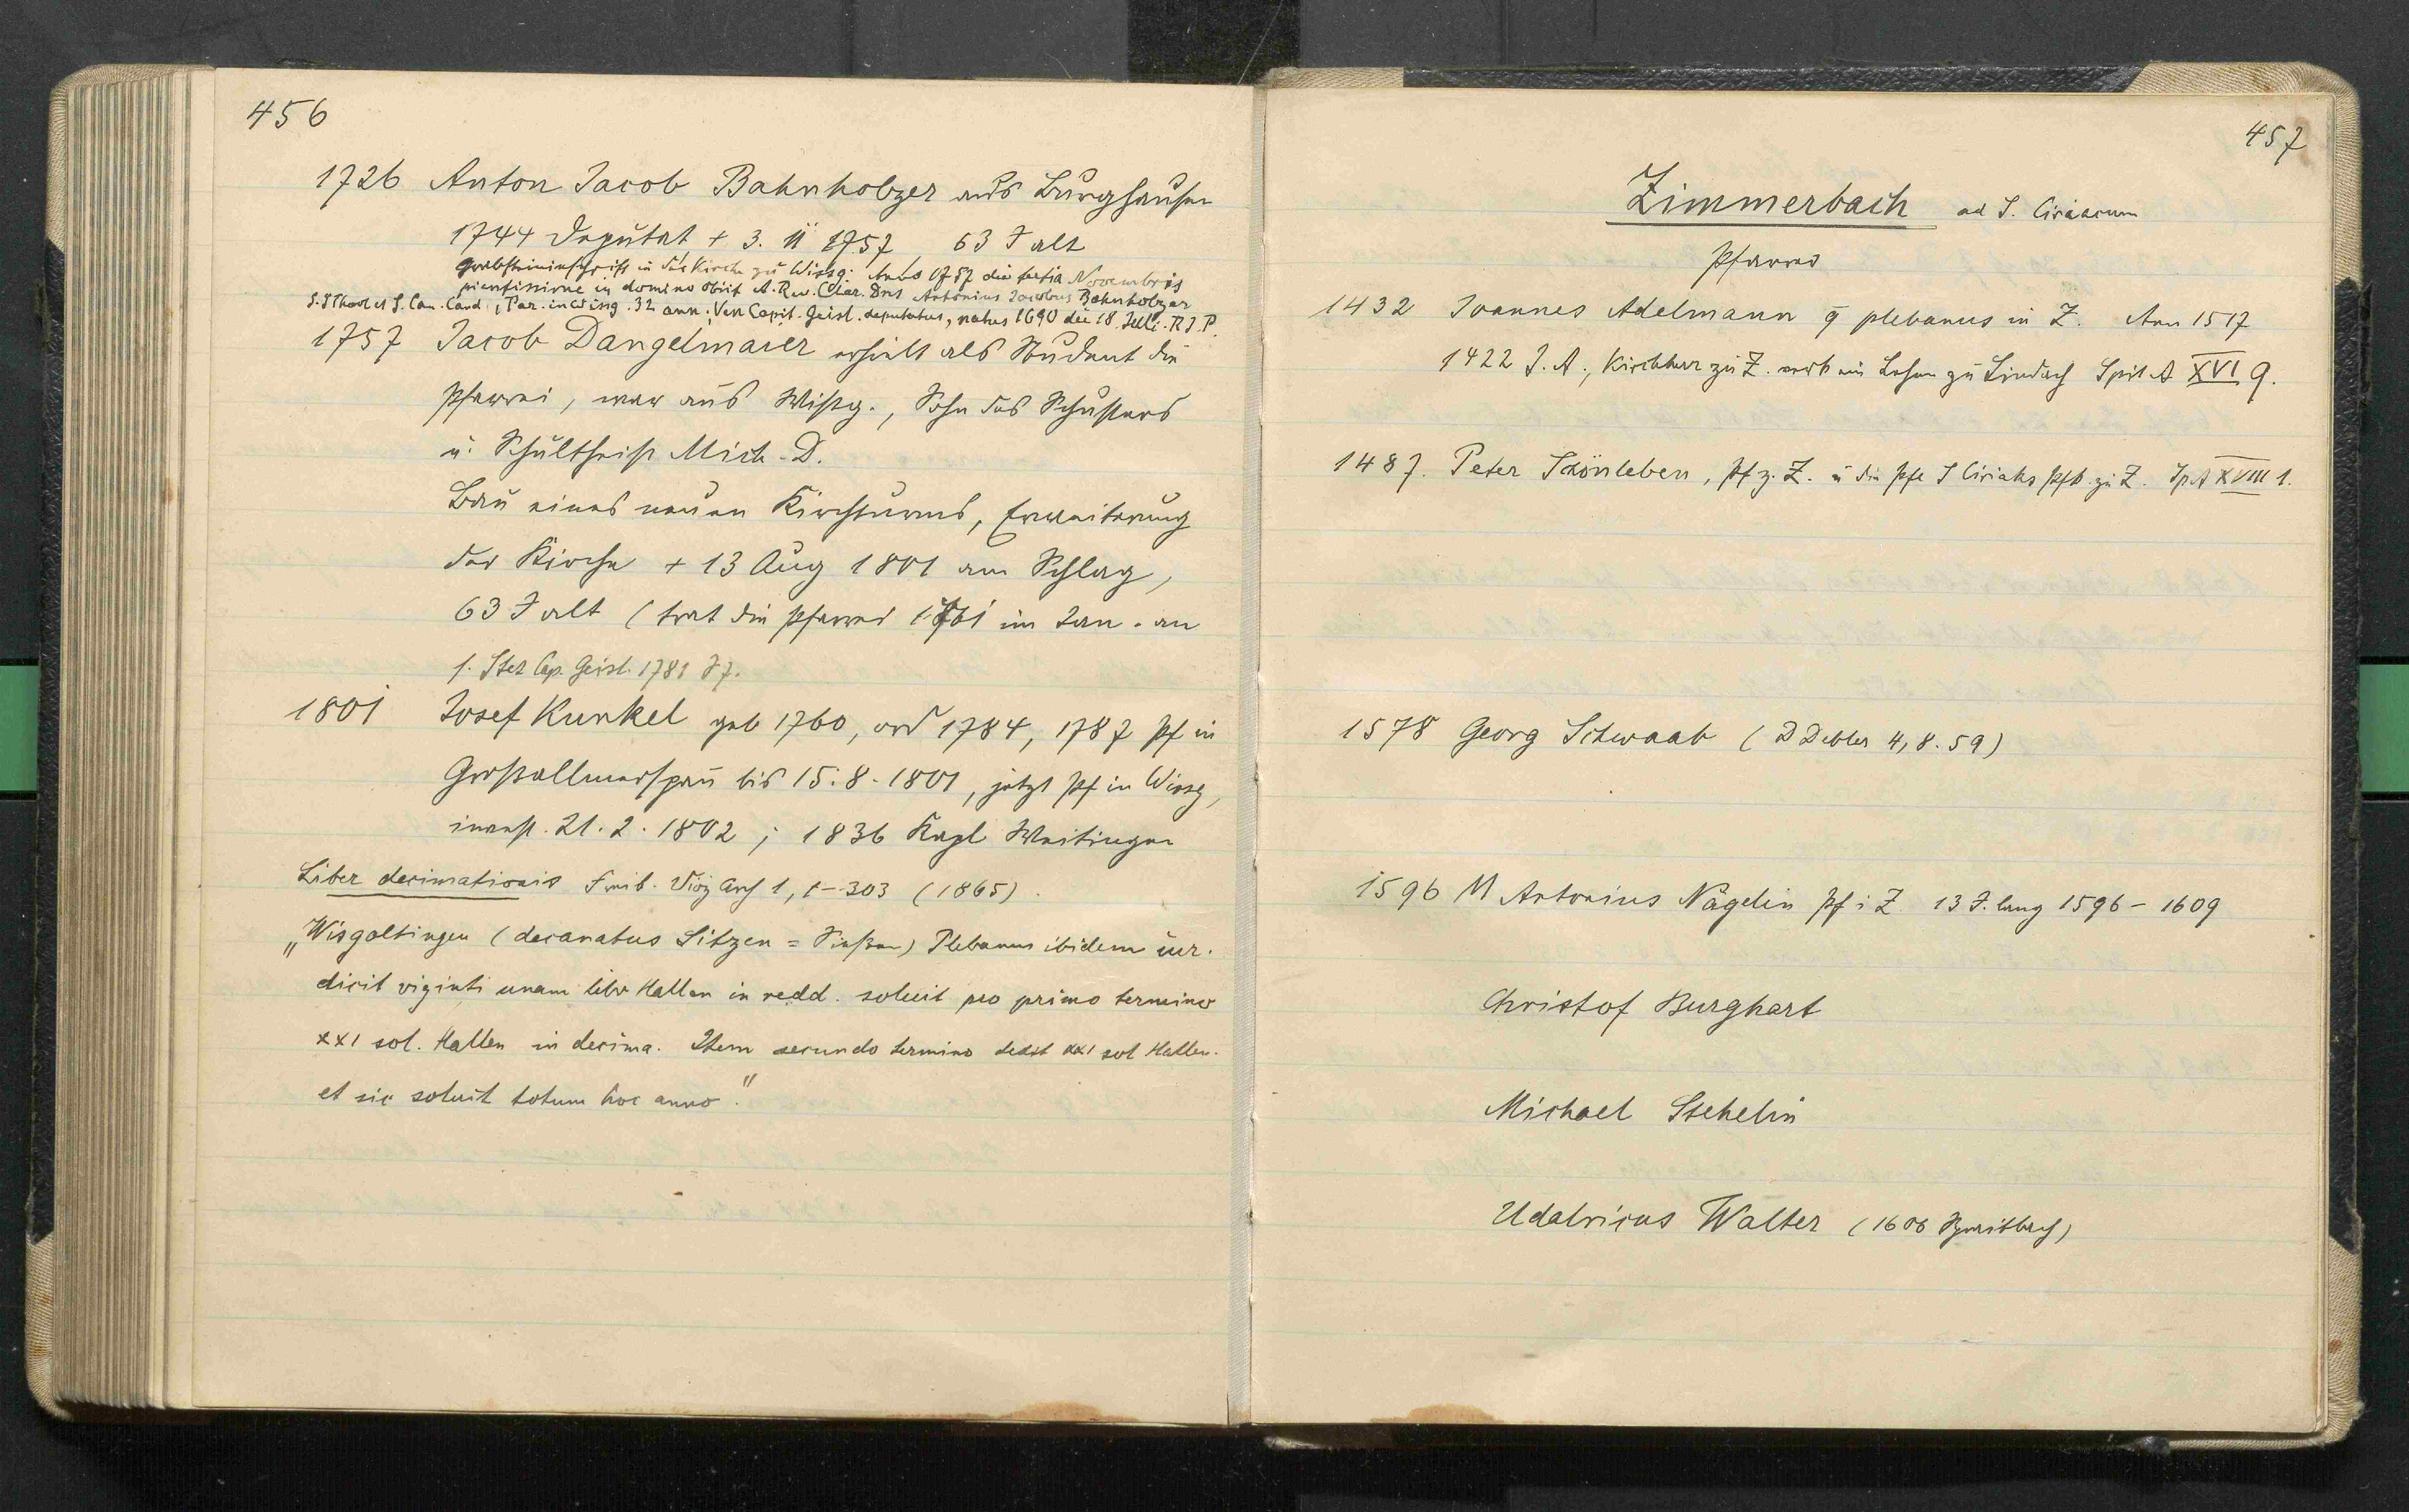 456
1726 Anton Jacob Bahnholzer aus Burghausen
1744 Deputat + 3. 11 1757 63 J alt
Grabsteininschrift in der Kirche zu Wissg. Anno 1757 die tertia Novembris
pientissime in domino obiit A. Rev. Clar. Dns Antonius Jacobus Bahnholzer
S.S Theol et S. Can. Cand., Par. in Wissg. 32 ann; Ven Capit. Geisl. deputatus, natus 1690 die 18. Julii. R.I.P.
1757 Jacob Dangelmaier erhielt als Student die
Pfarrei, war aus Wißg., Sohn des Schusters
u. Schultheiß Mich. D.
Bau eines neuen Kirchturms, Erweiterung
der Kirche + 13 Aug 1801 am Schlag,
63 J alt (trat die Pfarrei 1761 im Jan. an
1. Stet Cap. Geisl. 1781 87.
1801 Josef Kunkel geb 1760, ord 1784, 1787 Pf in
Großallmerspan bis 15.8.1801, jetzt Pf in Wissg,
invest. 21.2.1802; 1836 Kapl Waitingen
Liber decimationis Freib. Diöz Arch 1, 1-303 (1865).
"Wisgoltingen (decanatus Sitzen = Süßen) Plebanus ibidem iur.
dicit viginti unam libr Hallen in redd. soluit pro primo termino
XXI sol. Hallen in decima. Item secundo termino dedit XXI sol Hallen.
et sic soluit totum hoc anno."
457
Zimmerbach ad S. Ciriacum
Pfarrer
1432 Joannes Adelmann q plebanus in Z. Ann 1517
1422 J. A., Kirchherr zu Z. verk ein Lehen zu Lindach Spit A XVI 9.
1487. Peter Schönleben, Pf z. Z. u die Pfe S Ciriaks Pfk zu Z. Sp A XVIII 1.
1578 Georg Schwaab (D Debler 4, 8. 59)
1596 M Antonius Nägelin Pf i Z. 13 J. lang 1596 - 1609
Christof Burghart
Michael Stehelin
Udalricus Walter (1606 Spraitbach)